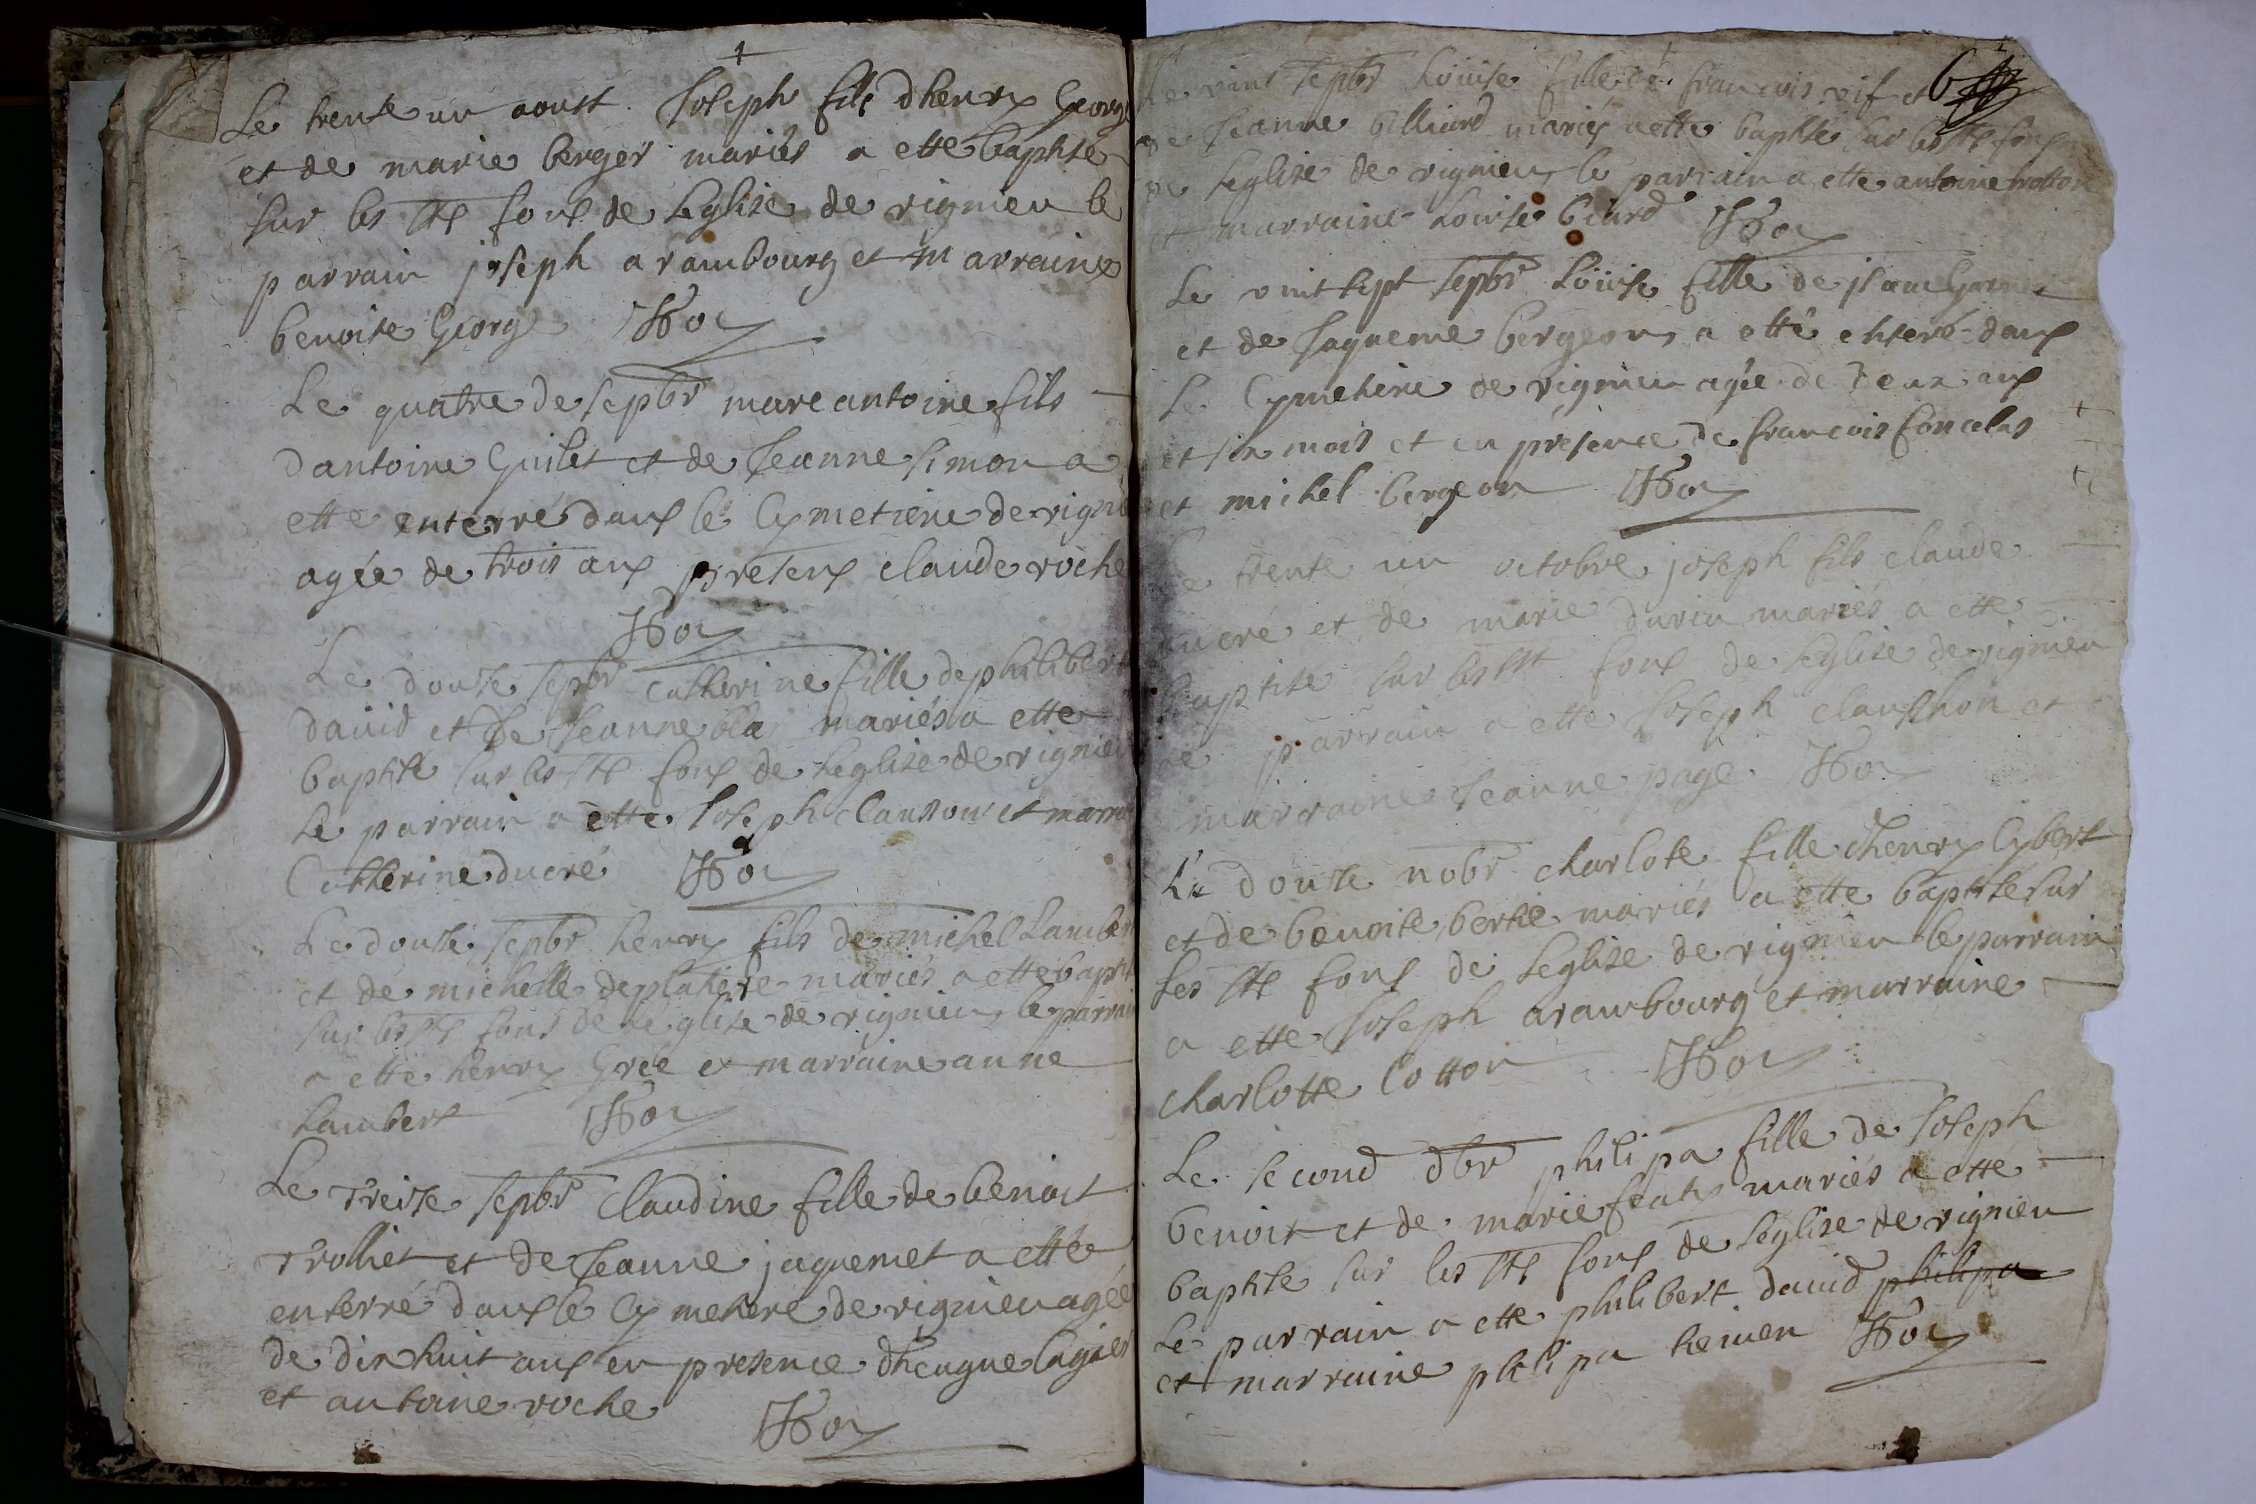 Le trente un aoust Joseph fils dhenry George
et de marie berger mariés a ette baptisé
sur les sts fons de leglise de vignieu le
parrain joseph arambourg et marraine
benoite George
Le quatre de sepbr marc antoine fils
dantoine Guilet et de Jeanne simon a
ette enterré dans le Cymetiere de vignieu
agée de trois ans presens claude roche
Le douse sepbr catherine fille de philibert
david et de Jeanne mariés a ette
baptise sur les sts fons de leglise de vignieu
Le parrain a ette Joseph clauson et marraine
Catherine ducré
Le douse sepbr henry fils de michel Lambert
et de michelle deplatiere mariés a ette baptise
sur les sts fons de leglise de vignieu le parrain
a ette henry Grée et marraine anne
Lambert
Le treise sepbr Claudine fille de benoit
trolliet et de Jeanne jaquemet a etté
enterré dans le Cymetiere de vignieu agée
de dix huit ans en presence
et antoine roche
6
Le vint sepbr Loüise fille de francois vif et
de Jeanne billiard mariés a ette baptisé sur les sts fons
de leglise de vignieu le parrain a ette antoine trotton
et marraine Louise biard
Le vint sept sepbr Loüise fille de
et de Jaqueme bergeon a etté enteré dans
Le Cymetiere de vignieu agée de deux ans
et six mois et en présence de francois
et michel bergeon
Le trente un octobre joseph fils claude
ducré et de marie durin mariés a ette
baptise sur les sts fons de leglise de vignieu
Le parrain a ette Joseph et
marraine Jeanne page
Le douse nobr charlote fille dhenry Cybert
et de benoite bertié mariés a ette baptise sur
Les sts fons de Leglise de vignieu le parrain
a ette Joseph arambourg et marraine
charlotte Cotton
Le second dbr philipa fille de Joseph
benoit et de marie mariés a ette
baptise sur les sts fons de leglise de vignieu
Le parrain a ette philibert david philipa
et marraine philipa